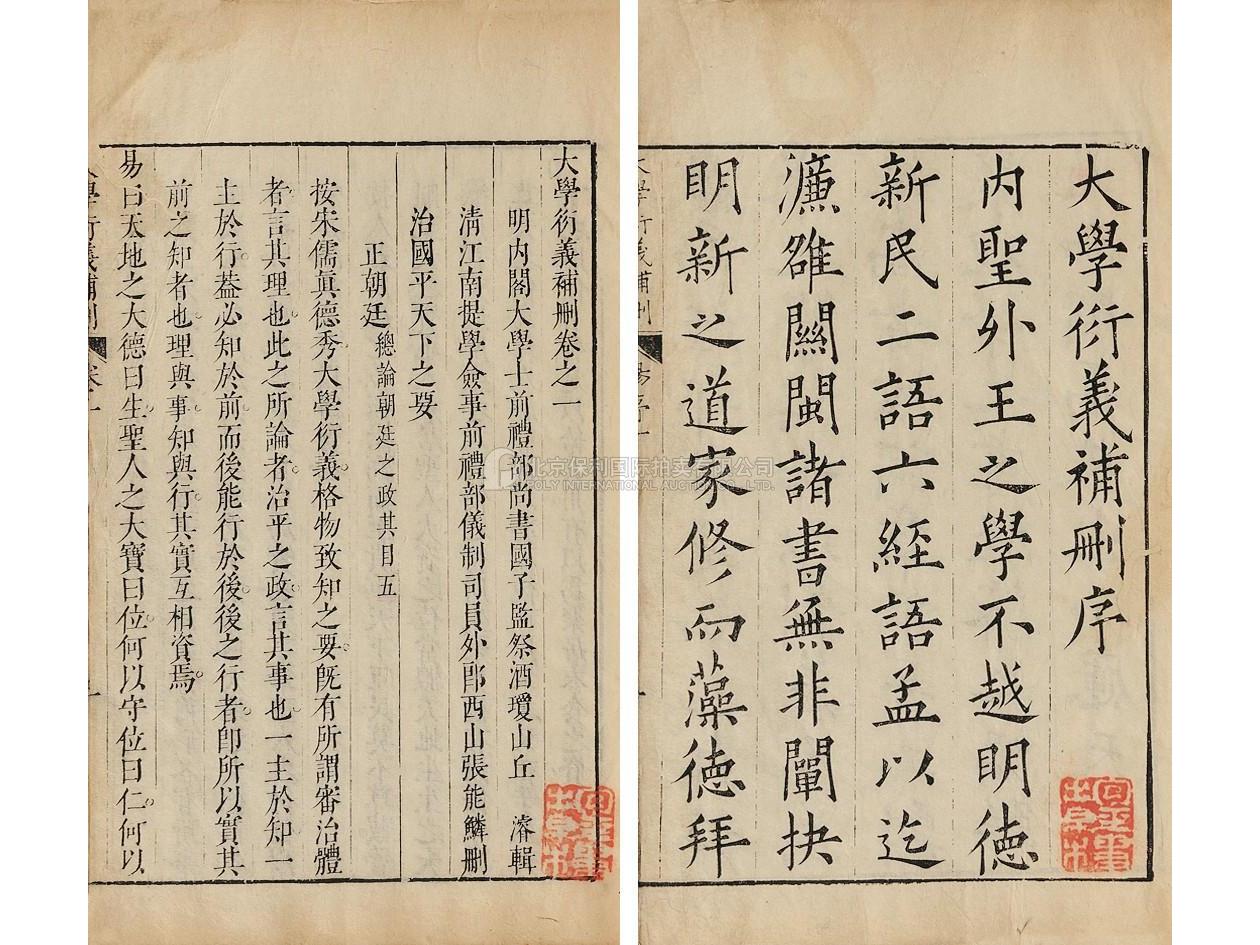 大學衍義補刪序
內聖外王之學不越明德
新民二語六經語孟以迄
濂雒關閩諸書無非闡抉
明新之道家修而藻德拜
大學衍義補刪卷之一
明內閣大學士前禮部尚書國子監祭酒瓊山丘　濬輯
清江南提學僉事前禮部儀制司員外郎西山張能鱗刪
治國平天下之要
正朝廷 總論朝廷之政其目五
按宋儒眞德秀大學衍義格物致知之要旣有所謂審治體
者言其理也此之所論者治平之政言其事也一主於知一
主於行葢必知於前而後能行於後後之行者卽所以實其
前之知者也理與事知與行其實互相資焉
易曰天地之大德曰生聖人之大寶曰位何以守位曰仁何以
北京保利国际拍卖有限公司
POLY INTERNATIONAL AUCTION CO., LTD.